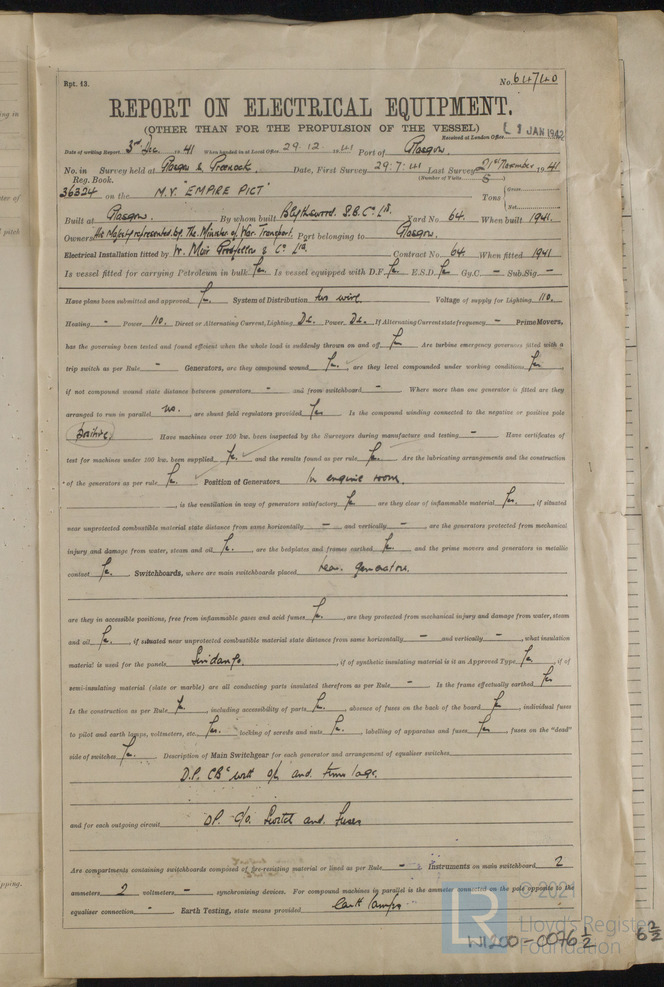 Rpt. 13.
No. 64740
REPORT ON ELECTRICAL EQUIPMENT.
(OTHER THAN FOR THE PROPULSION OF THE VESSEL)
Received at London Office JAN 1942
Date of writing Report 3rd Dec. 1941 When handed in at Local Office 29.12.1941 Port of Glasgow.
No. in Survey held at Glasgow & Greenock Date, First Survey 29.7.41 Last Survey 21st November 1941
Reg. Book. (Number of Visits 5)
36324 on the M.V. "EMPIRE PICT" Tons { Gross Net
Built at Glasgow. By whom built Blythswood S.B. Co Ltd. Yard No 64. When built 1941.
Owners His Majesty represented by The Minister of War Transport. Port belonging to Glasgow.
Electrical Installation fitted by W. Muir & Co Ltd Contract No 64 When fitted 1941
Is vessel fitted for carrying Petroleum in bulk Yes Is vessel equipped with D.F. Yes E.S.D. Yes Gy.C. – Sub.Sig. –
Have plans been submitted and approved Yes. System of Distribution two wire Voltage of supply for Lighting 110.
Heating - Power 110. Direct or Alternating Current, Lighting D.C. Power D.C. If Alternating Current state frequency - Prime Movers,
has the governing been tested and found efficient when the whole load is suddenly thrown on and off Yes Are turbine emergency governors fitted with a
trip switch as per Rule - Generators, are they compound wound Yes. are they level compounded under working conditions Yes.
if not compound wound state distance between generators - and from switchboard - Where more than one generator is fitted are they
arranged to run in parallel no. are shunt field regulators provided Yes Is the compound winding connected to the negative or positive pole
positive. Have machines over 100 kw. been inspected by the Surveyors during manufacture and testing - Have certificates of
test for machines under 100 kw. been supplied Yes and the results found as per rule Yes Are the lubricating arrangements and the construction
of the generators as per rule Yes. Position of Generators In engine room.
is the ventilation in way of generators satisfactory Yes are they clear of inflammable material Yes. if situated
near unprotected combustible material state distance from same horizontally – and vertically – are the generators protected from mechanical
injury and damage from water, steam and oil Yes. are the bedplates and frames earthed Yes and the prime movers and generators in metallic
contact Yes. Switchboards, where are main switchboards placed near generators.
are they in accessible positions, free from inflammable gases and acid fumes Yes. are they protected from mechanical injury and damage from water, steam
and oil Yes. if situated near unprotected combustible material state distance from same horizontally – and vertically – what insulation
material is used for the panels Sindanyo. if of synthetic insulating material is it an Approved Type Yes, if of
semi-insulating material (slate or marble) are all conducting parts insulated therefrom as per Rule - Is the frame effectually earthed Yes
Is the construction as per Rule Yes. including accessibility of parts Yes. absence of fuses on the back of the board Yes, individual fuses
to pilot and earth lamps, voltmeters, etc. Yes. locking of screws and nuts Yes. labelling of apparatus and fuses Yes, fuses on the "dead"
side of switches Yes. Description of Main Switchgear for each generator and arrangement of equaliser switches
D.P. CBs with o/l and time lags.
and for each outgoing circuit DP. c/o. Switch and Fuses
Are compartments containing switchboards composed of fire-resisting material or lined as per Rule - Instruments on main switchboard 2
ammeters 2 voltmeters – synchronising devices. For compound machines in parallel is the ammeter connected on the pole opposite to the
equaliser connection - Earth Testing, state means provided Earth lamps
LR © 2021
Lloyd's Register
Foundation
W1200-0076 1/2